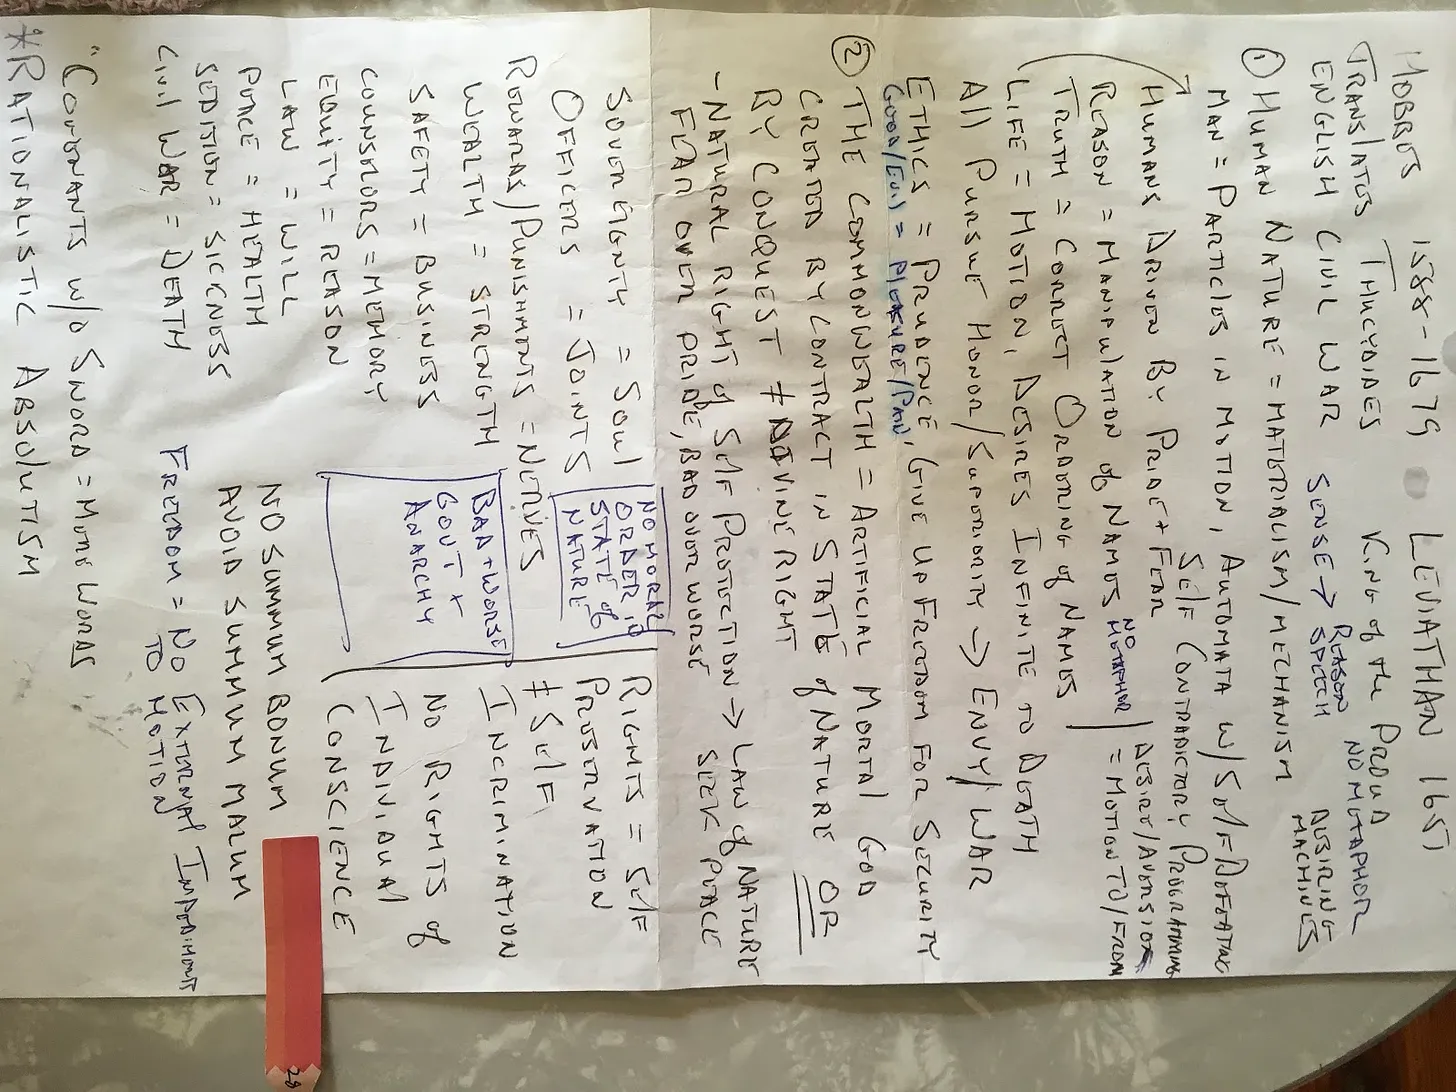 HOBBES 1588-1679 LEVIATHAN 1651
TRANSLATES THUCYDIDES KING of the PROUD
ENGLISH CIVIL WAR SENSE → REASON SPEECH NO METAPHOR
DESIRING MACHINES
① HUMAN NATURE = MATERIALISM/MECHANISM
MAN = PARTICLES IN MOTION, AUTOMATA W/ SELF DEFEATING
SELF CONTRADICTORY PROGRAMMING
HUMANS DRIVEN BY PRIDE + FEAR
DESIRE/AVERSION
= MOTION TO/FROM
REASON = MANIPULATION of NAMES NO METAPHOR
TRUTH = CORRECT ORDRING of NAMES
LIFE = MOTION, DESIRES INFINITE TO DEATH
All PURSUE HONOR/SUPERIORITY → ENVY/WAR
ETHICS = PRUDENCE, GIVE UP FREEDOM FOR SECURITY
GOOD/EVIL = PLEASURE/PAIN
② THE COMMONWEALTH = ARTIFICIAL MORTAL GOD
CREATED BY CONTRACT IN STATE of NATURE OR
BY CONQUEST ≠ DIVINE RIGHT
- NATURAL RIGHT of SELF PROTECTION → LAW of NATURE
SEEK PEACE
FEAR OVER PRIDE, BAD OVER WORSE
SOVEREIGNTY = SOUL
OFFICERS = JOINTS
REWARDS/PUNISHMENTS = NERVES
WEALTH = STRENGTH
SAFETY = BUSINESS
COUNSELORS = MEMORY
EQUITY = REASON
LAW = WILL
PEACE = HEALTH
SEDITION = SICKNESS
CIVIL WAR = DEATH
NO MORAL
ORDER IN
STATE of
NATURE
BAD + WORSE
GOVT +
ANARCHY
RIGHTS = SELF
PRESERVATION
≠ SELF
INCRIMINATION
NO RIGHTS of
INDIVIDUAL
CONSCIENCE
NO SUMMUM BONUM
AVOID SUMMUM MALUM
FREEDOM = NO EXTERNAL IMPEDIMENT
TO MOTION
"COVENANTS w/o SWORD = MERE WORDS
*RATIONALISTIC ABSOLUTISM
28